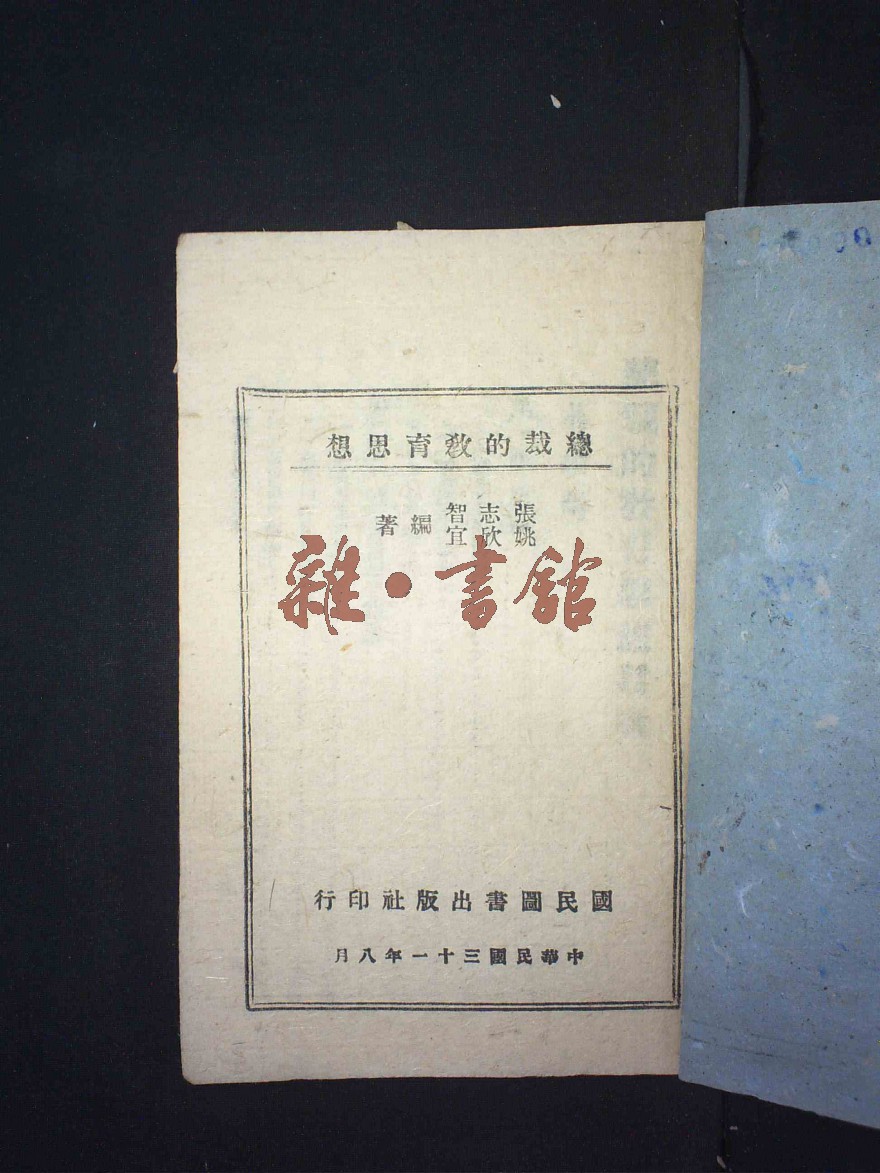 總裁的教育思想
張志智
姚欣宜
編著
雜·書館
國民圖書出版社印行
中華民國三十一年八月